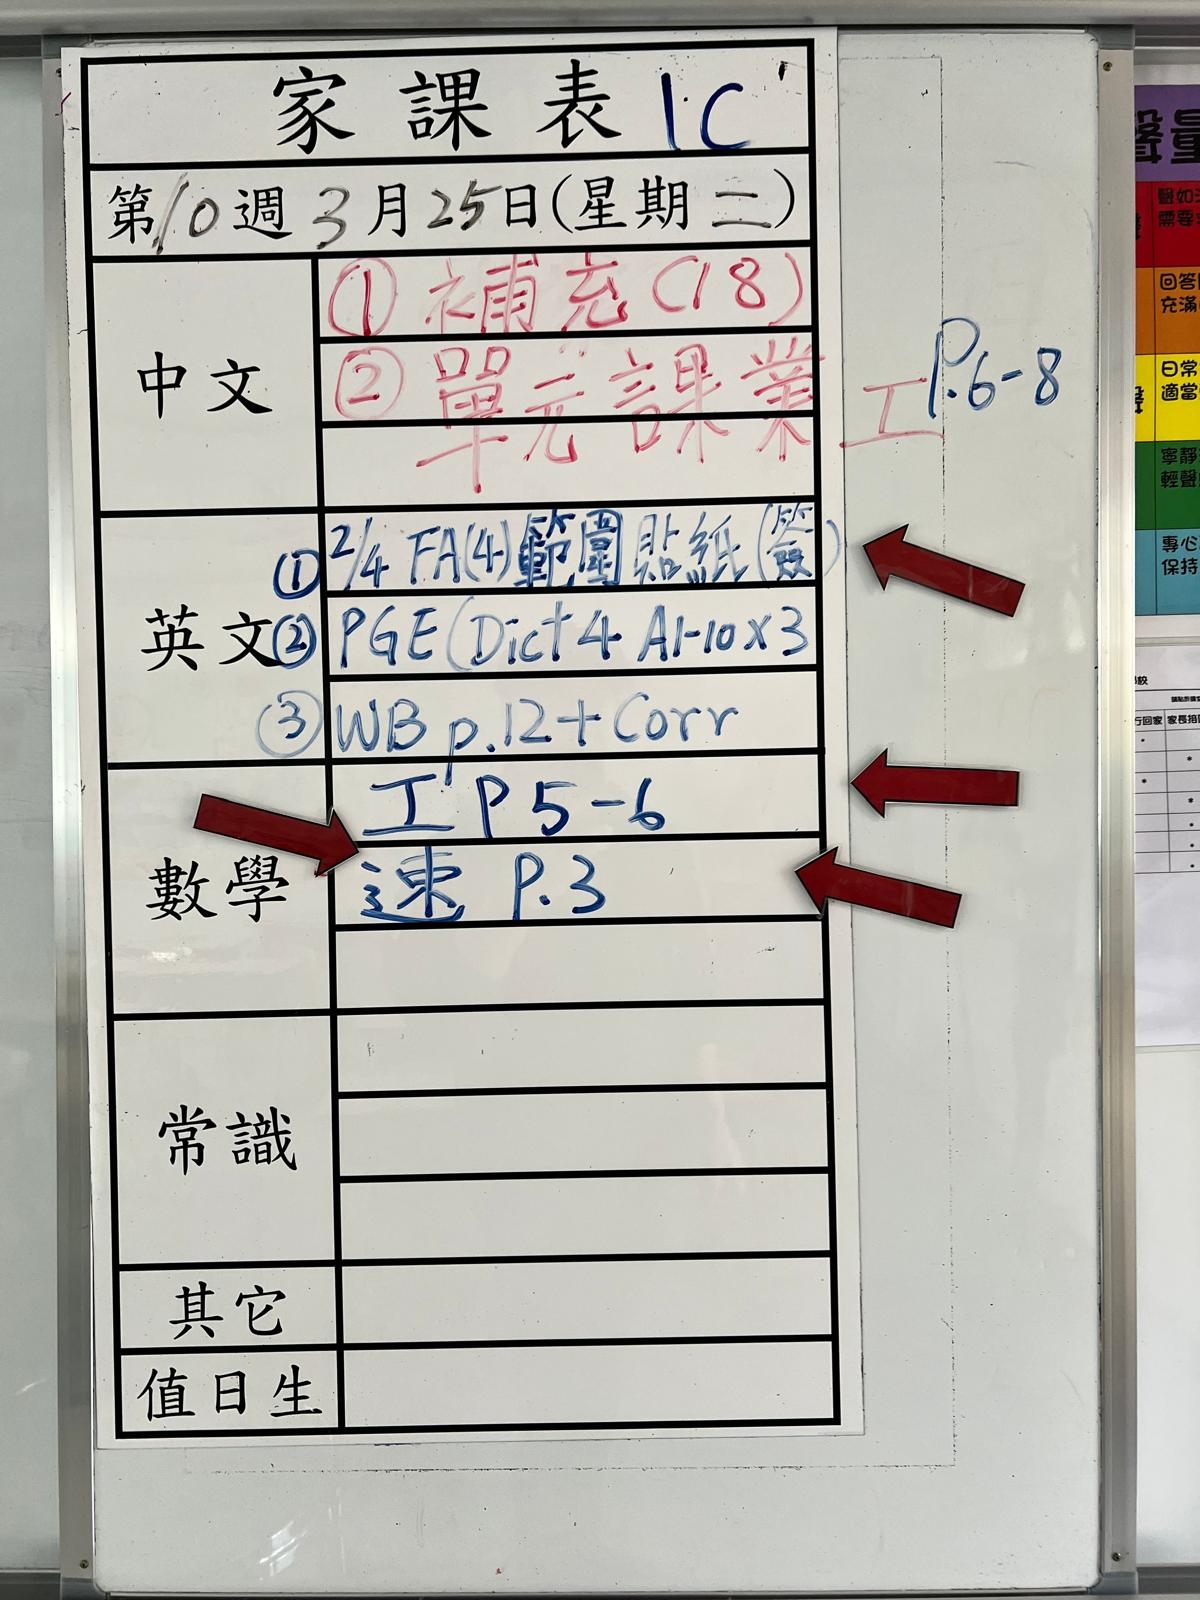 家課表 1C
第10週3月25日(星期二)
中文
① 補充(18)
② 單元課業 工 P.6-8
英文
① 2/4 FA(4)範圍貼紙(簽)
② PGE(Dict 4 A1-10x3
③ WB p.12+Corr
數學
工 P 5-6
速 P.3
常識
其它
值日生
聲量
聲如
需要
回答
充滿
日常
適當
寧靜
輕聲
專心
保持
行回家